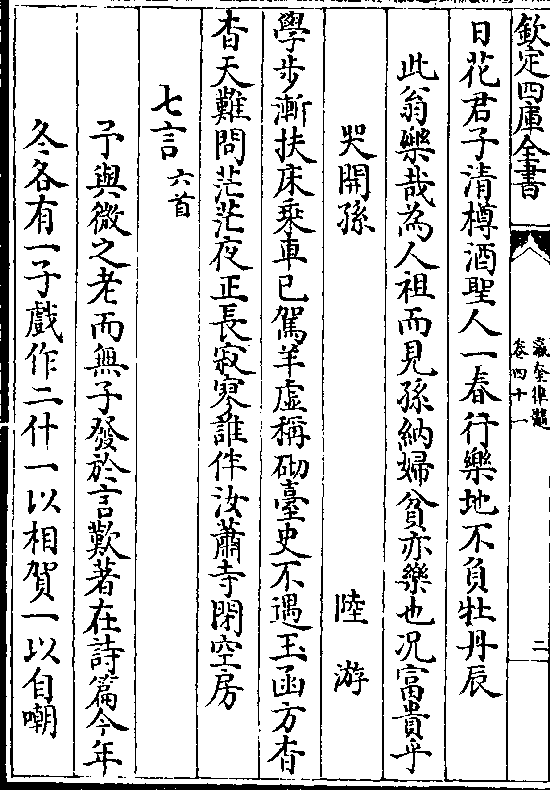 欽定四庫全書
瀛奎律髓
卷四十一
二
日花君子清樽酒聖人一春行樂地不負牡丹辰
此翁樂哉為人祖而見孫納婦貧亦樂也况富貴乎
哭開孫 陸游
學步漸扶床乘車已駕羊虛稱砌臺史不遇玉函方杳
杳天難問茫茫夜正長寂寥誰伴汝蕭寺閉空房
七言六首
予與微之老而無子發於言歎著在詩篇今年
冬各有一子戲作二什一以相賀一以自嘲